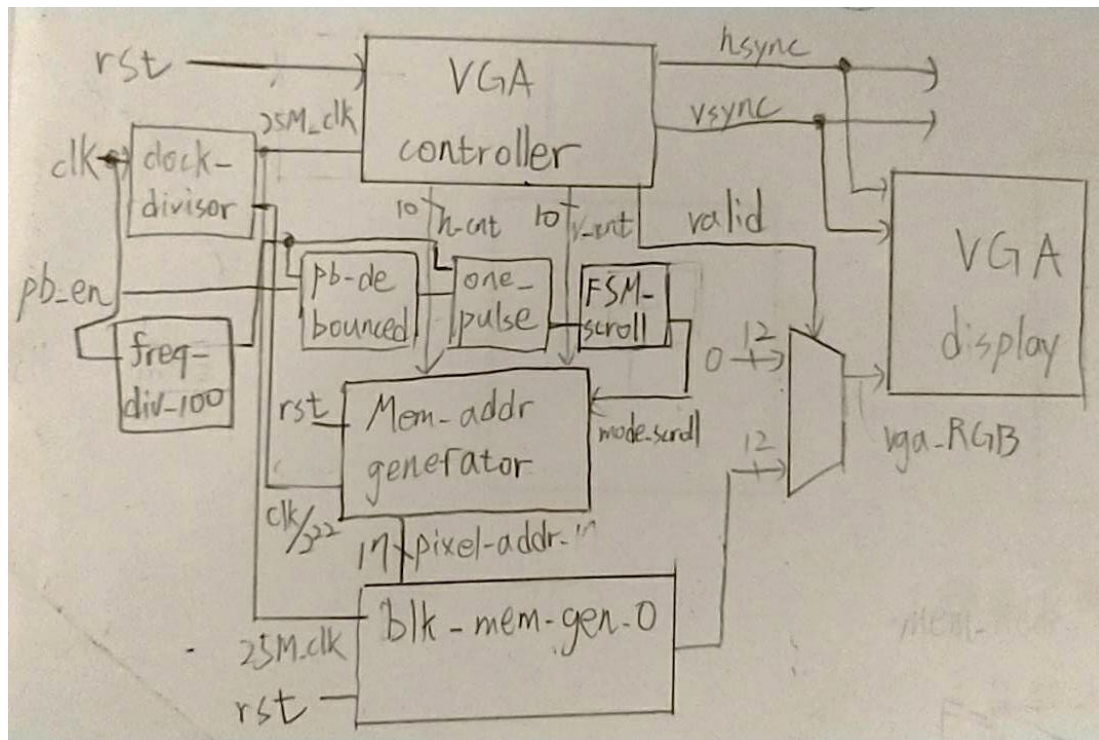 rst
VGA
controller
hsync
vsync
25M_clk
clk
clock-
divisor
10
h_cnt
10
v_cnt
valid
VGA
display
pb_en
pb-de
bounced
one_
pulse
FSM-
scroll
freq-
div-100
0
12
rst
Mem-addr
generator
mode_scroll
12
vga_RGB
clk/2^22
17
pixel-addr-
blk-mem-gen-0
25M_clk
rst